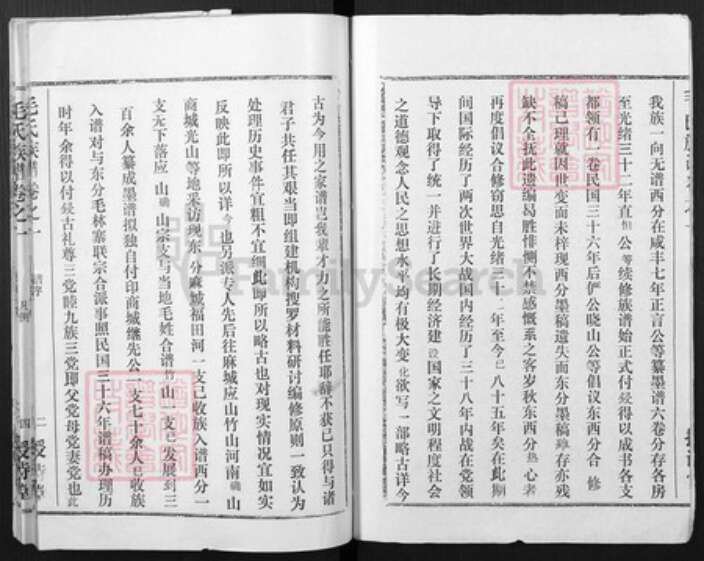 我族一向无谱西分在咸丰七年正言公等纂墨谱六卷分存各房
至光绪三十二年直恒公等续修族谱始正式付梓得以成书各支
都领有一卷民国三十六年后俨公晓山公等倡议东西分合修
稿已理就因世变而未梓现西分墨稿遗失而东分墨稿虽存亦残
缺不全抚此遗编曷胜悱恻不禁感慨系之客岁秋东西分热心者
再度倡议合修窃思自光绪三十二年至今已八十五年矣在此期
间国际经历了两次世界大战国内经历了三十八年内战在党领
导下取得了统一并进行了长期经济建设国家之文明程度社会
之道德观念人民之思想水平均有极大变化欲写一部略古详今
古为今用之家谱岂我辈才力之所能胜任耶辞不获已只得与诸
君子共任其艰当即组建机构搜罗材料研讨编修原则一致认为
处理历史事件宜粗不宜细此即所以略古也对现实情况宜如实
反映此即所以详今也另派专人先后往麻城应山竹山河南确山
商城光山等地采访现东分麻城福田河一支已收族入谱西分一
支无下落应山确山宗支与当地毛姓合谱竹山一支已发展到三
百余人纂成墨谱拟独自付印商城继先公一支七十余人已收族
入谱对与东分毛林寨联宗合派事照民国三十六年谱稿办理历
时年余得以付梓古礼尊三党睦九族三党即父党母党妻党也此
毛氏族谱卷之一
凡例
二
四